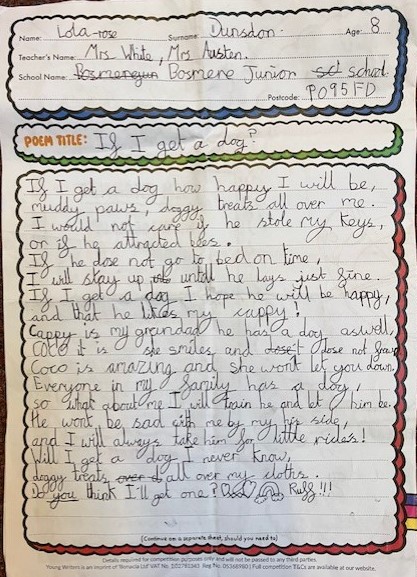 Name: Lola-rose Surname Dunsdon. Age: 8
Teacher's Name: Mrs White, Mrs Austen.
School Name: Bosmere Junior school
Postcode: PO95FD
POEM TITLE: If I get a dog?
If I get a dog how happy I will be,
muddy paws, doggy treats all over me.
I would not care if he stole my keys,
or if he attracted bees.
If he dose not go to bed on time,
I will stay up untill he lays just fine.
If I get a dog I hope he will be happy,
and that he likes my cappy!
Cappy is my grandad he has a dog aswell,
Coco it is she smiles and dose not frown
Coco is amazing and she wont let you down.
Everyone in my family has a dog,
so what about me I will train he and let him be.
He wont be sad with me by my his side,
and I will always take him for little rides!
Will I get a dog I never know,
doggy treats all over my cloths.
Do you think I'll get one? Ruff!!!
(Continue on a separate sheet, should you need to)
Details required for competition purposes only and will not be passed to any third parties.
Young Writers is an imprint of 'Bonacia Ltd' VAT No. 202781343 Reg No. 05366980 | Full competition T&Cs are available at our website.